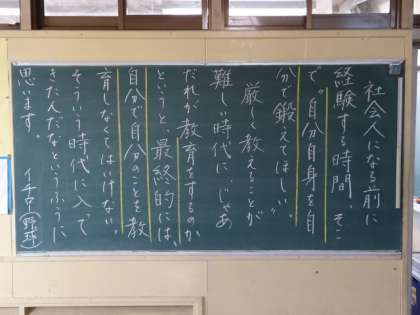 社会人になる前に
経験する時間。そこ
で。自分自身を自
分で鍛えてほしい。
厳しく教えることが
難しい時代に、じゃあ
だれが教育をするのか
というと、最終的には、
自分で自分のことを教
育しなくてはいけない。
そういう時代に入って
きたんだなというふうに
思います。 イチロー(野球)